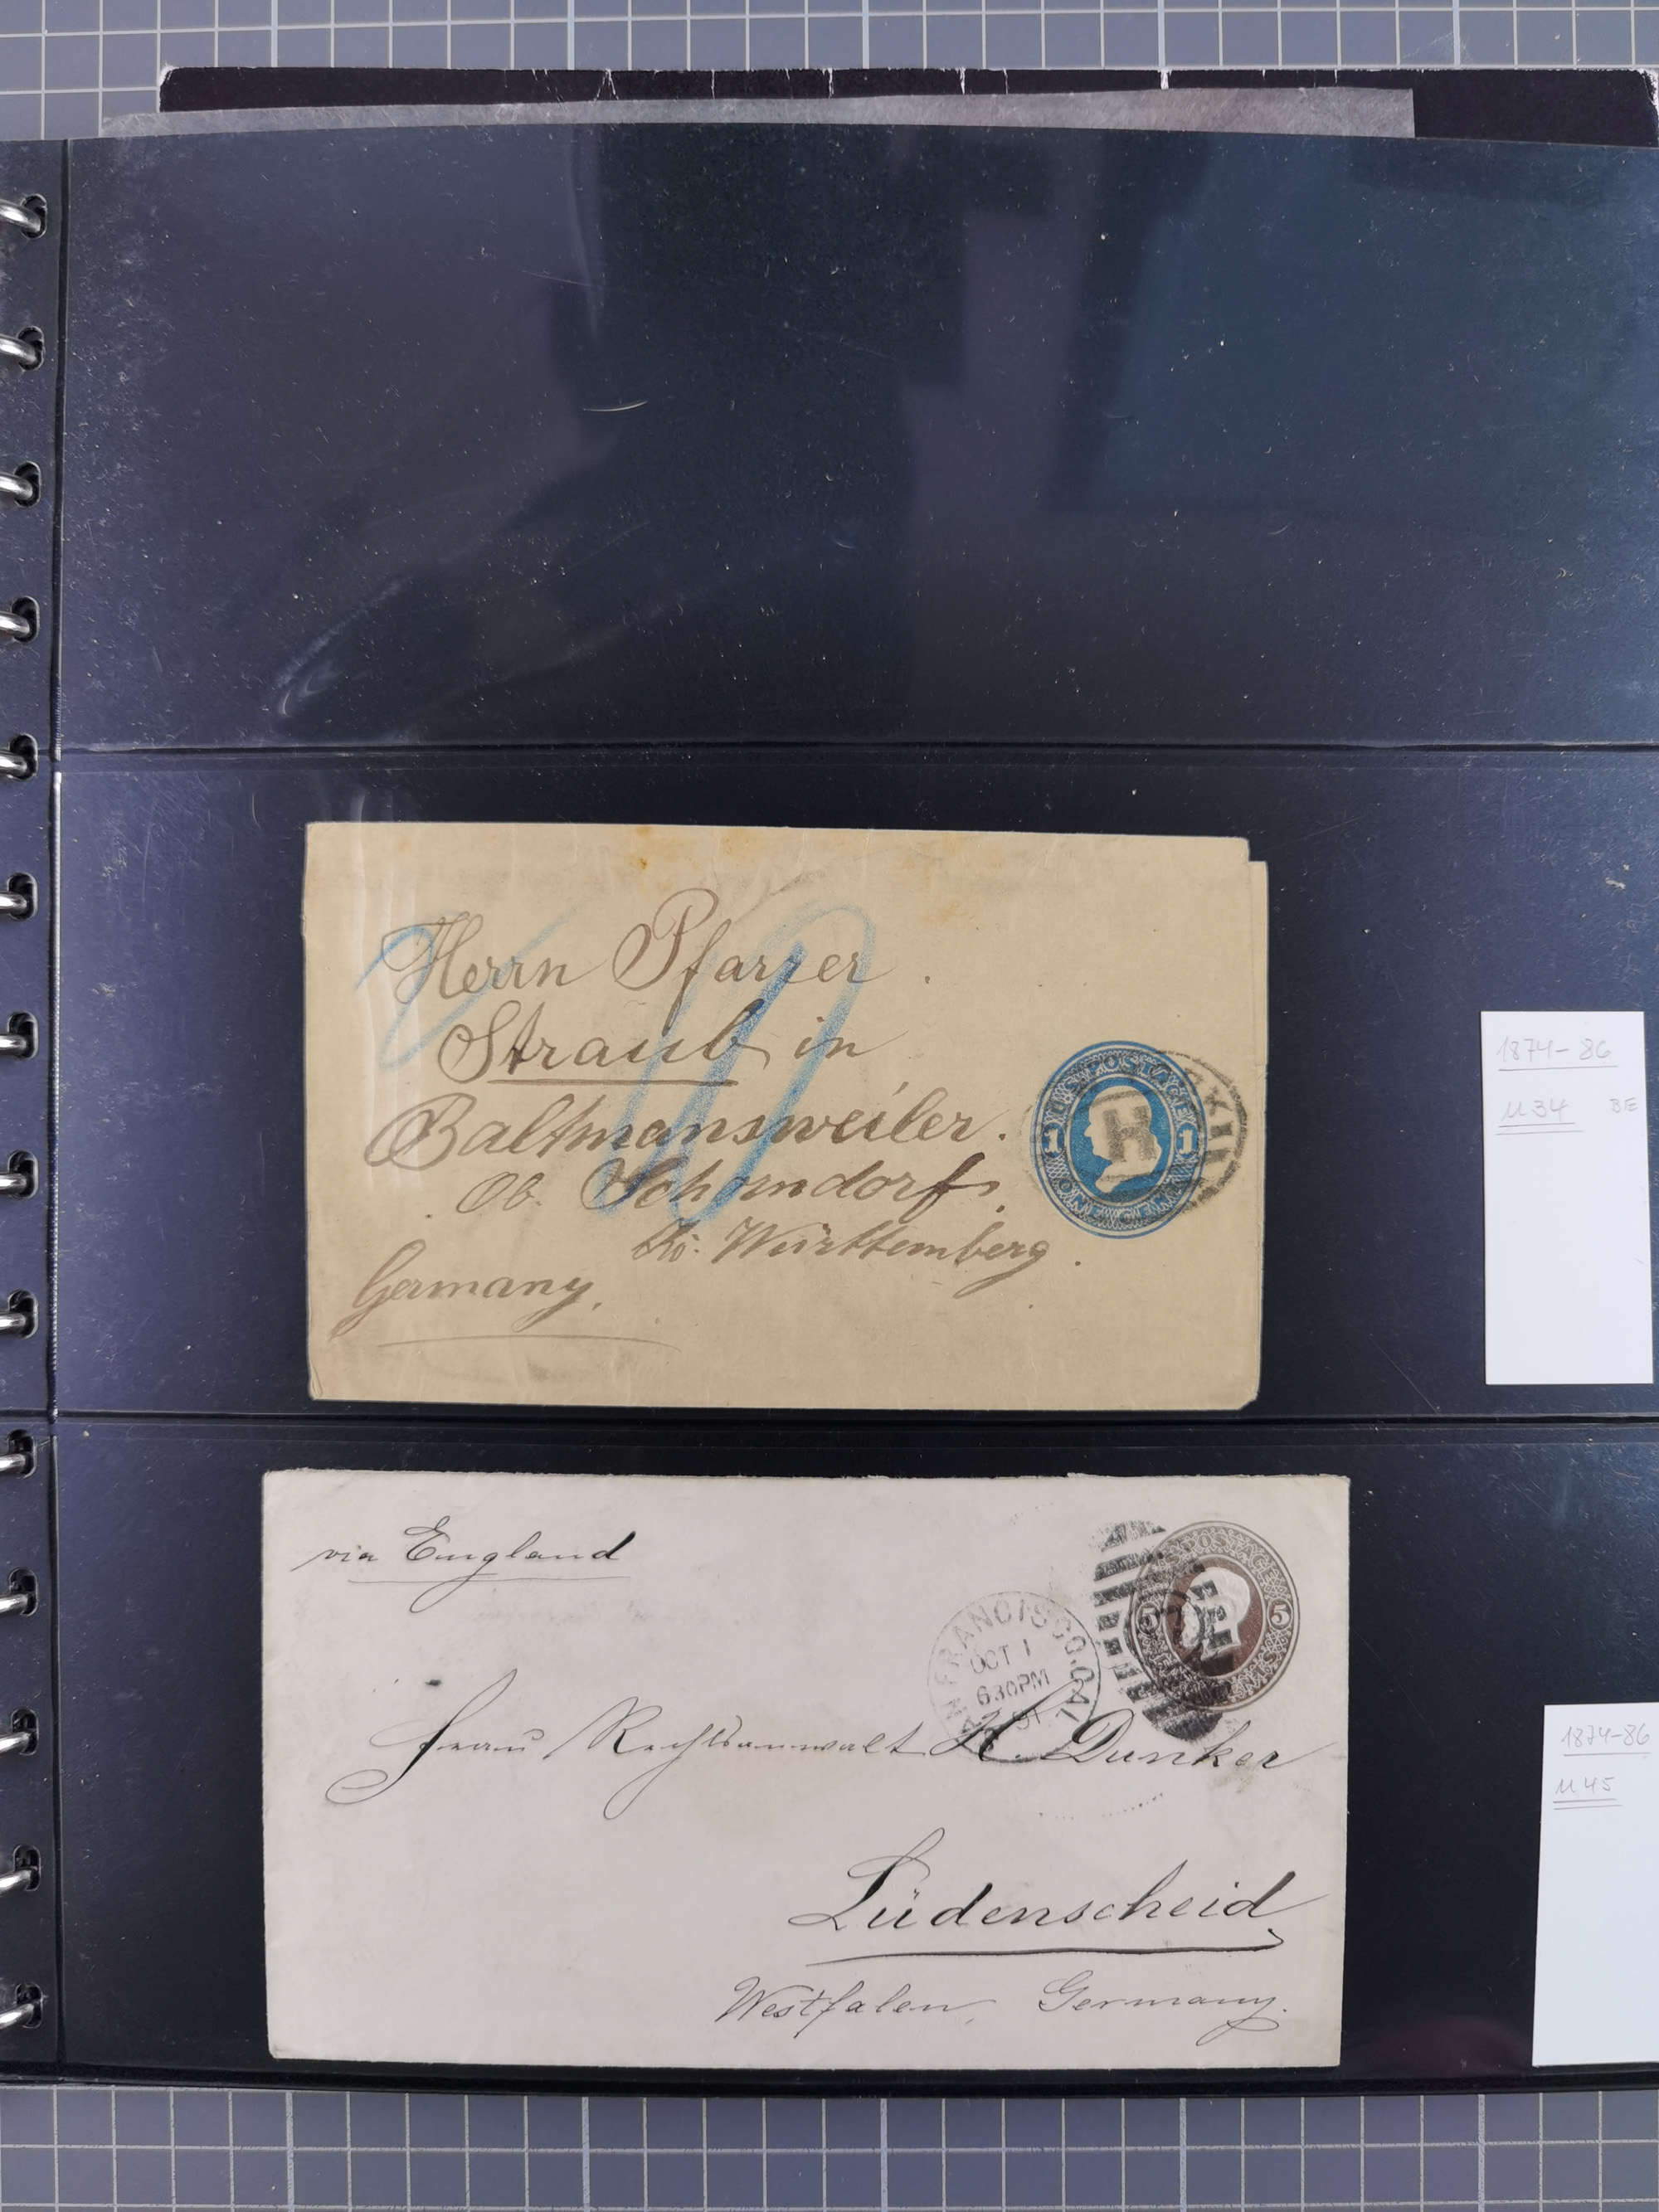 Herrn Pfarrer.
Straub in
Baltmansweiler.
Ob. Schorndorf.
Kö. Württemberg.
Germany.
10
U.S. POSTAGE
1 1
ONE CENT
H
1874-86
U34 BE
via England
SAN FRANCISCO. CAL.
OCT 1
630PM
U.S. POSTAGE
5 5
Frau Rechtsanwalt H. Dunker
Lüdenscheid
Westfalen, Germany.
1874-86
U45